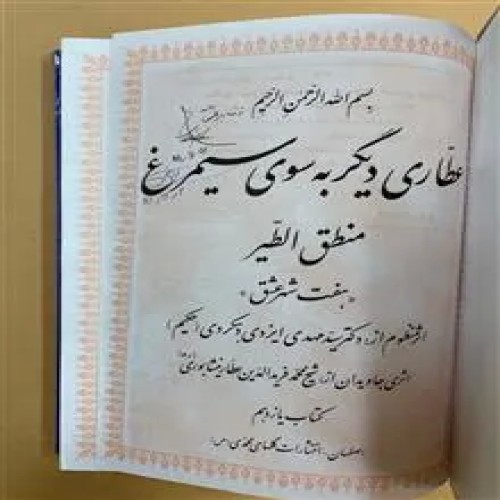 بسم الله الرحمن الرحیم
عطاری دیگر به سوی سیمرغ
منطق الطیر
«هفت شهر عشق»
اثر منظوم از: دکتر سید مهدی ایزدی دهکردی (حکیم)
اثری جاویدان از: شیخ محمد فریدالدین عطار نیشابوری
کتاب یازدهم
اصفهان: انتشارات گلهای محمدی (ص)